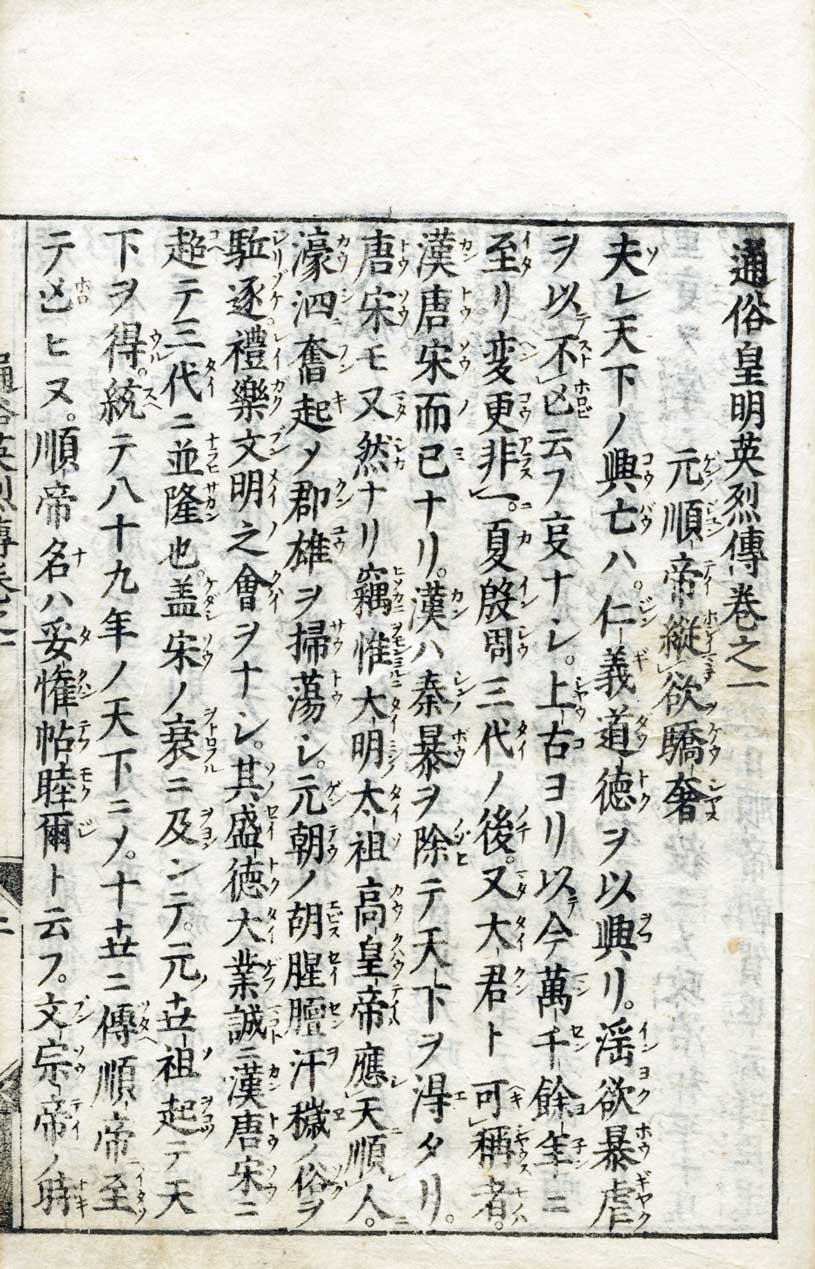 通俗皇明英烈傳卷之一
元順帝縱欲驕奢
夫レ天下ノ興亡ハ。仁義道徳ヲ以興リ。滛欲暴虐
ヲ以不亾云フ叓ナシ。上古ヨリ以今萬千餘年ニ
至リ変更非一。夏殷周三代ノ後。又大君ト可稱者。
漢唐宋而已ナリ。漢ハ秦暴ヲ除テ天下ヲ得タリ。
唐宋モ又然ナリ竊惟大明太祖高皇帝應天順人。
濠泗奮起メ郡雄ヲ掃蕩シ。元朝ノ胡腥膻汗穢ノ俗ヲ
駈逐禮樂文明之會ヲナシ。其盛徳大業誠ニ漢唐宋ニ
超テ三代ニ並隆也。盖宋ノ衰ニ及ンテ。元ノ世祖起テ天
下ヲ得。統テ八十九年ノ天下ニメ。十世ニ傳順帝至
テ亾ヒヌ。順帝名ハ妥懽帖睦爾ト云フ。文宗帝ノ時
通俗英烈傳卷之一